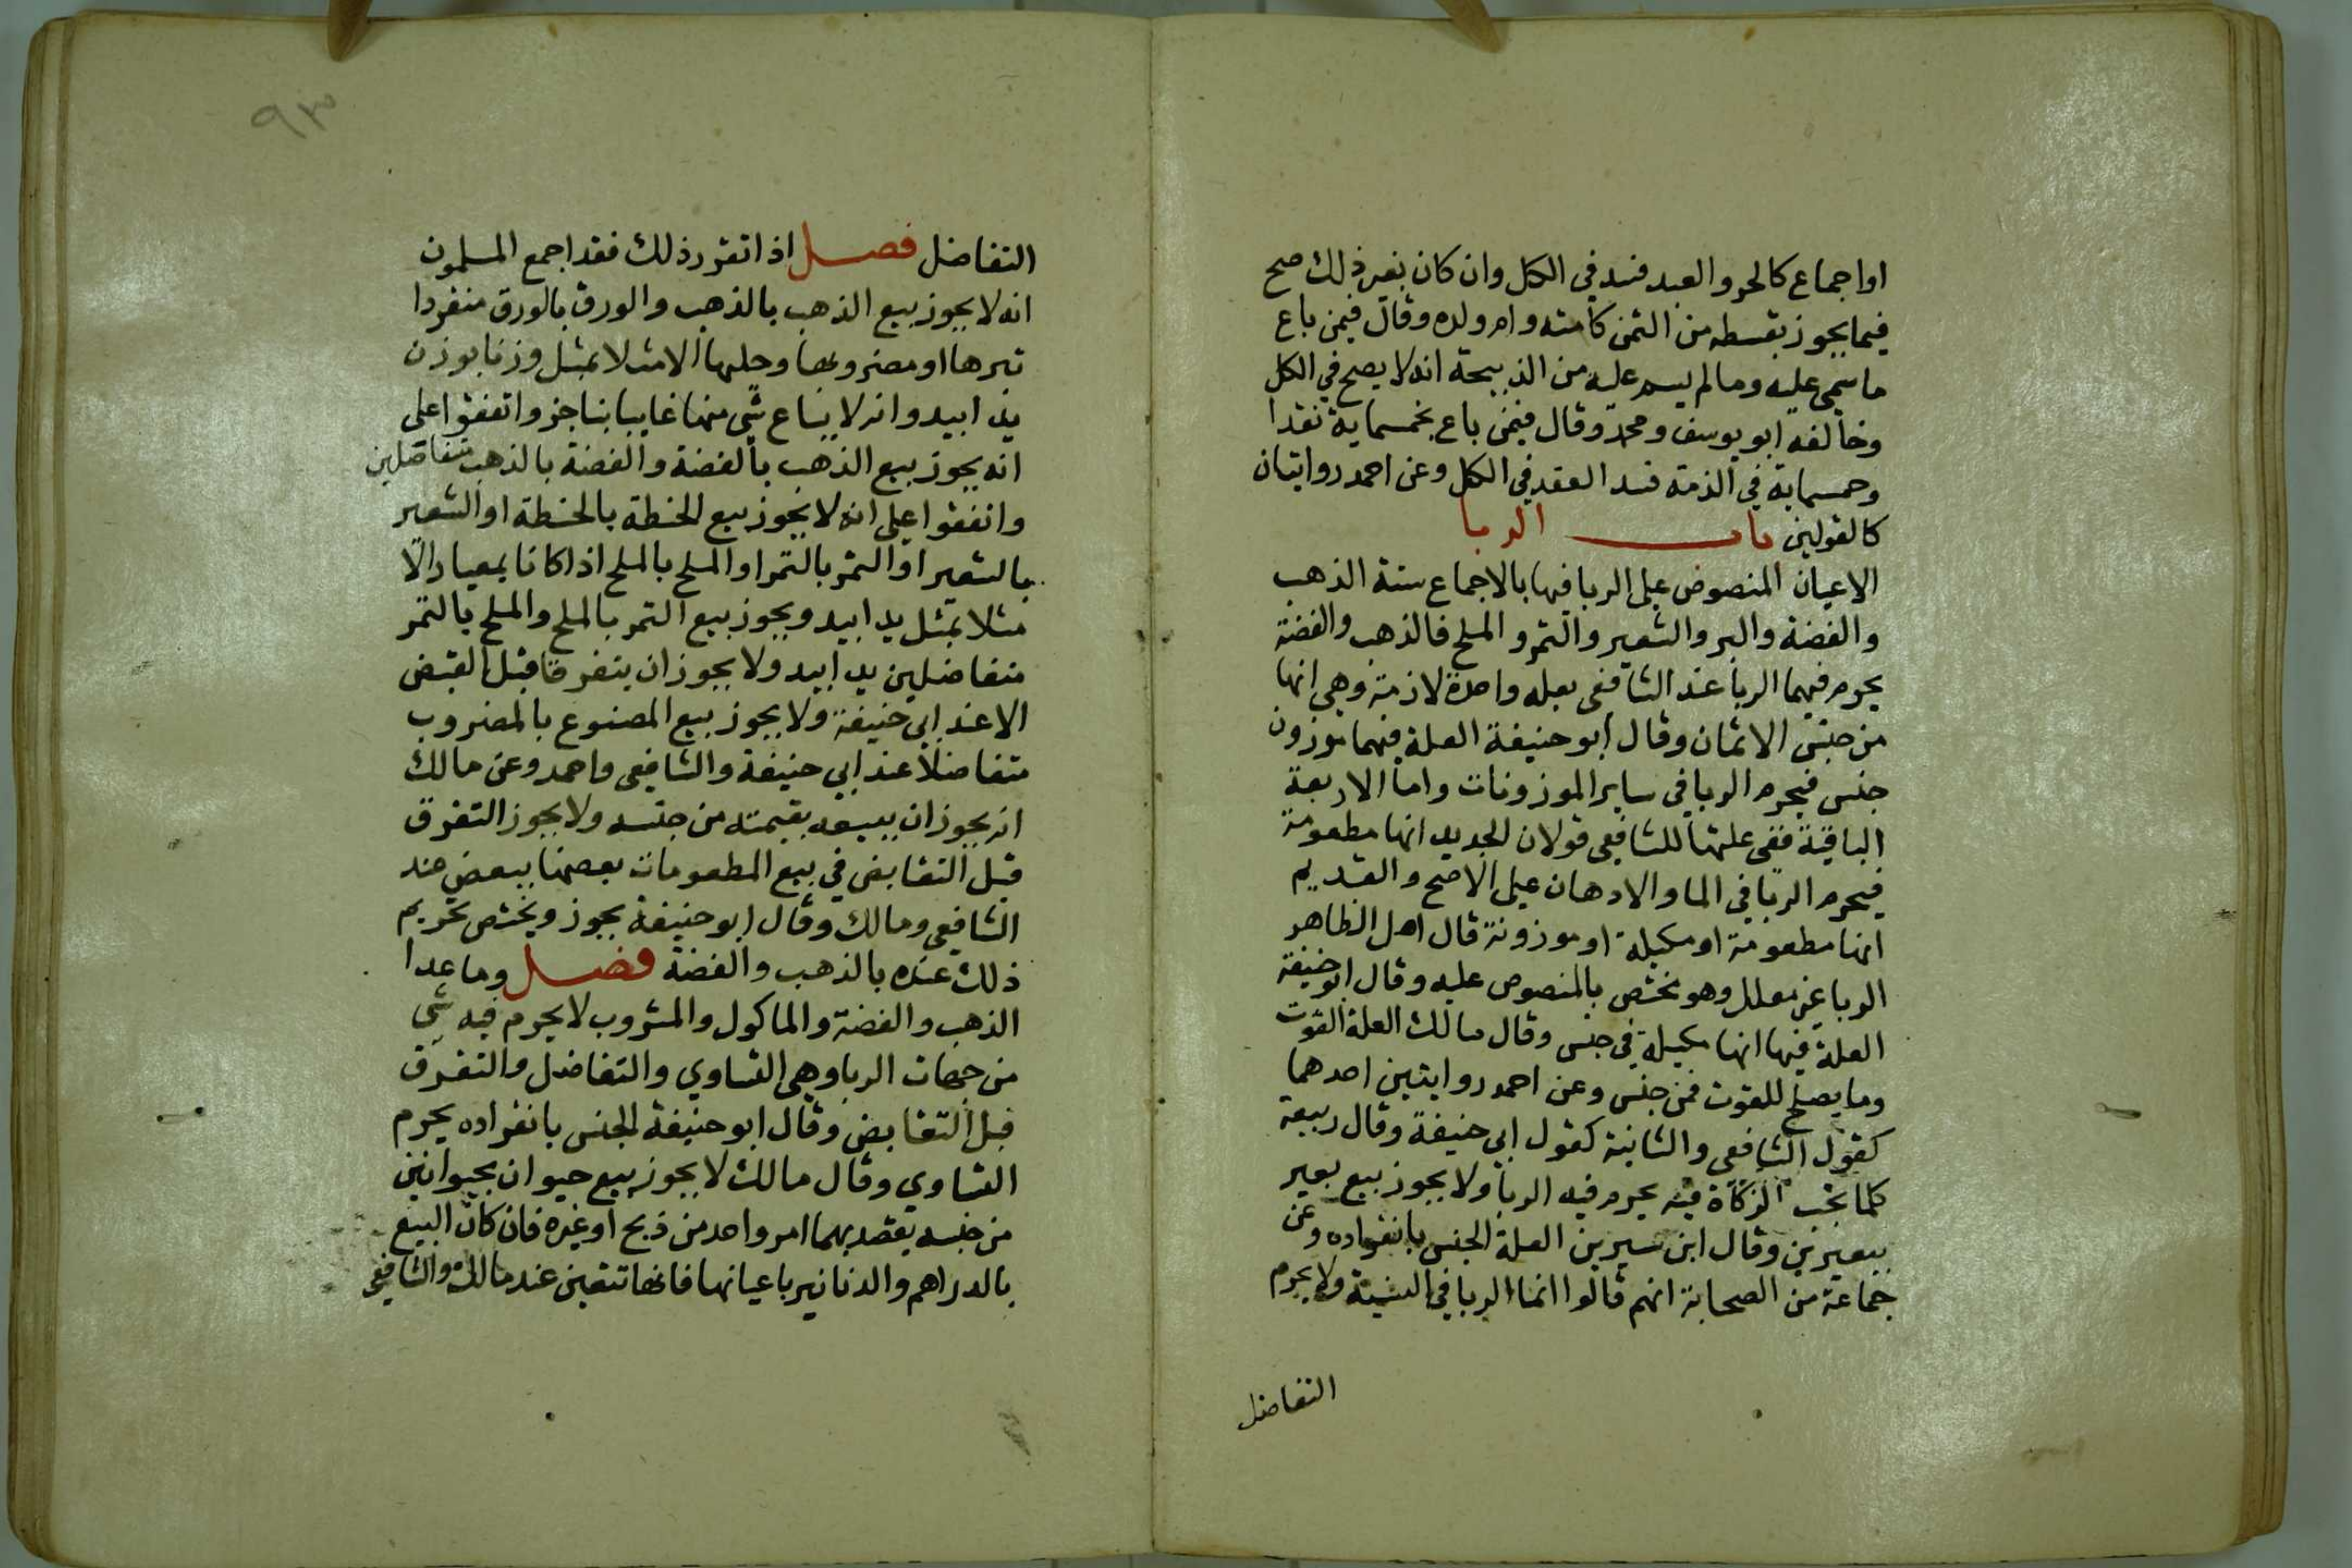 او اجماع كالحر والعبد فسد في الكل وان كان بغير ذلك صح
فيما يجوز بقسطه من الثمن كأمته وام ولده وقال فيمن باع
ما سمى عليه وما لم يسم عليه من الذبيحة انه لا يصح في الكل
وخالفه ابو يوسف ومحمد وقال فيمن باع بخمسماية نقدا
وخمسماية في الذمة فسد العقد في الكل وعن احمد روايتان
كالقولين باب الربا
الاعيان المنصوص على الربا فيها بالاجماع ستة الذهب
والفضة والبر والشعير والتمر والملح فالذهب والفضة
يحرم فيهما الربا عند الشافعي بعلة واحدة لازمة وهي انها
من جنس الاثمان وقال ابو حنيفة العلة فيهما موزون
جنس فيحرم الربا في ساير الموزونات واما الاربعة
الباقية ففي علتها للشافعي قولان الجديد انها مطعومة
فيحرم الربا في الما والادهان على الاصح والقديم
انها مطعومة او مكيلة او موزونة قال اهل الظاهر
الربا غير معلل وهو مختص بالمنصوص عليه وقال ابو حنيفة
العلة فيها انها مكيلة في جنس وقال مالك العلة القوت
وما يصلح للقوت من جنس وعن احمد روايتين احدهما
كقول الشافعي والثانية كقول ابي حنيفة وقال ربيعة
كلما تجب الزكاة فيه يحرم فيه الربا ولا يجوز بيع بعير
ببعيرين وقال ابن سيرين العلة الجنس بانفراده وعن
جماعة من الصحابة انهم قالوا انما الربا في النسية ولا يحرم
التفاضل
٩٣
التفاضل فصل اذا تقرر ذلك فقد اجمع المسلمون
انه لا يجوز بيع الذهب بالذهب والورق بالورق منفردا
تبرها او مضروبها وحليها الا مثلا بمثل وزنا بوزن
يدا بيد وانه لا يباع شي منها غايبا بناجز واتفقوا على
انه يجوز بيع الذهب بالفضة والفضة بالذهب متفاضلين
واتفقوا على انه لا يجوز بيع الحنطة بالحنطة او الشعير
بالشعير او التمر بالتمر او الملح بالملح اذا كانا بمعيار الا
مثلا بمثل يدا بيد ويجوز بيع التمر بالملح والملح بالتمر
متفاضلين يدا بيد ولا يجوز ان يتفرقا قبل القبض
الا عند ابي حنيفة ولا يجوز بيع المصنوع بالمضروب
متفاضلا عند ابي حنيفة والشافعي واحمد وعن مالك
انه يجوز ان يبيعه بقيمته من جنسه ولا يجوز التفرق
قبل التقابض في بيع المطعومات بعضها ببعض عند
الشافعي ومالك وقال ابو حنيفة يجوز ويختص تحريم
ذلك عنده بالذهب والفضة فصل وما عدا
الذهب والفضة والماكول والمشروب لا يحرم فيه شي
من جهات الربا وهي التساوي والتفاضل والتفرق
قبل التقابض وقال ابو حنيفة الجنس بانفراده يحرم
التساوي وقال مالك لا يجوز بيع حيوان بحيوانين
من جنسه يقصد بهما امر واحد من ذبح او غيره فان كان البيع
بالدراهم والدنانير باعيانها فانها تتعين عند مالك والشافعي